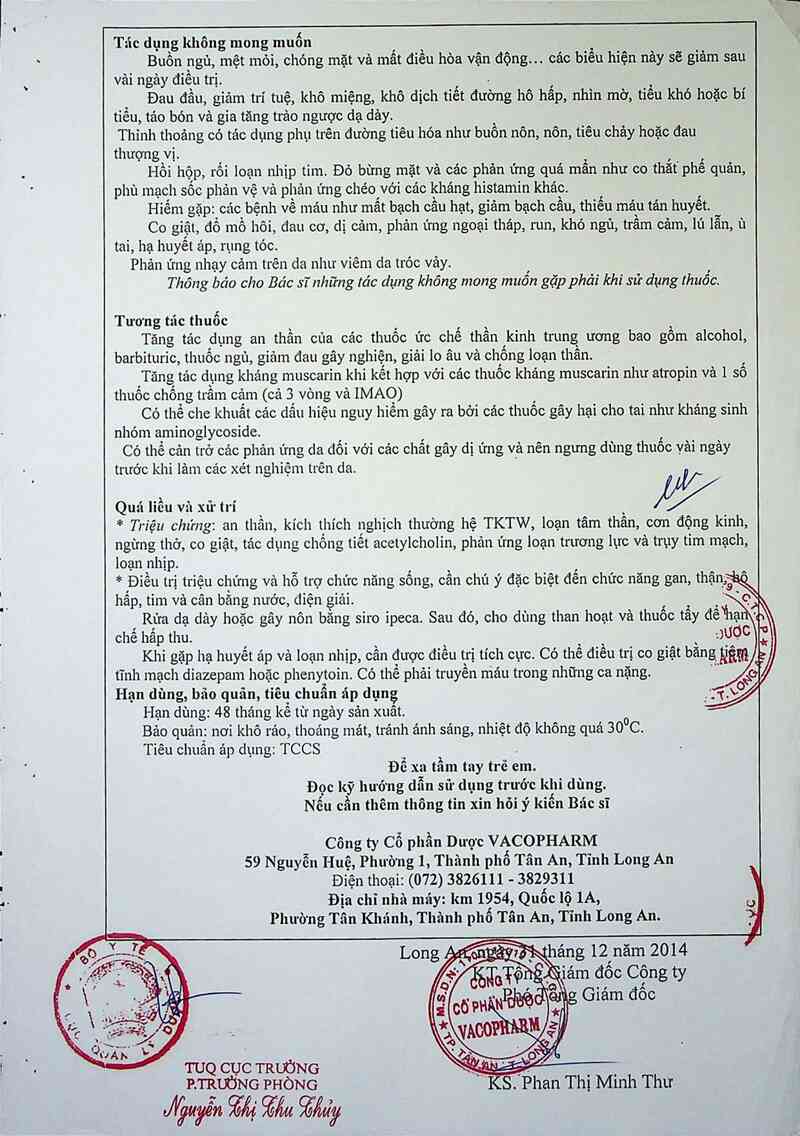 Tác dụng không mong muốn
Buồn ngủ, mệt mỏi, chóng mặt và mất điều hòa vận động… các biểu hiện này sẽ giảm sau
vài ngày điều trị.
Đau đầu, giảm trí tuệ, khô miệng, khô dịch tiết đường hô hấp, nhìn mờ, tiểu khó hoặc bí
tiểu, táo bón và gia tăng trào ngược dạ dày.
Thỉnh thoảng có tác dụng phụ trên đường tiêu hóa như buồn nôn, nôn, tiêu chảy hoặc đau
thượng vị.
Hồi hộp, rối loạn nhịp tim. Đỏ bừng mặt và các phản ứng quá mẫn như co thắt phế quản,
phù mạch sốc phản vệ và phản ứng chéo với các kháng histamin khác.
Hiếm gặp: các bệnh về máu như mất bạch cầu hạt, giảm bạch cầu, thiếu máu tán huyết.
Co giật, đổ mồ hôi, đau cơ, dị cảm, phản ứng ngoại tháp, run, khó ngủ, trầm cảm, lú lẫn, ù
tai, hạ huyết áp, rụng tóc.
Phản ứng nhạy cảm trên da như viêm da tróc vảy.
Thông báo cho Bác sĩ những tác dụng không mong muốn gặp phải khi sử dụng thuốc.
Tương tác thuốc
Tăng tác dụng an thần của các thuốc ức chế thần kinh trung ương bao gồm alcohol,
barbituric, thuốc ngủ, giảm đau gây nghiện, giải lo âu và chống loạn thần.
Tăng tác dụng kháng muscarin khi kết hợp với các thuốc kháng muscarin như atropin và 1 số
thuốc chống trầm cảm (cả 3 vòng và IMAO)
Có thể che khuất các dấu hiệu nguy hiểm gây ra bởi các thuốc gây hại cho tai như kháng sinh
nhóm aminoglycoside.
Có thể cản trở các phản ứng da đối với các chất gây dị ứng và nên ngưng dùng thuốc vài ngày
trước khi làm các xét nghiệm trên da.
Quá liều và xử trí
* Triệu chứng: an thần, kích thích nghịch thường hệ TKTW, loạn tâm thần, cơn động kinh,
ngừng thở, co giật, tác dụng chống tiết acetylcholin, phản ứng loạn trương lực và trụy tim mạch,
loạn nhịp.
* Điều trị triệu chứng và hỗ trợ chức năng sống, cần chú ý đặc biệt đến chức năng gan, thận, hô
hấp, tim và cân bằng nước, điện giải.
Rửa dạ dày hoặc gây nôn bằng siro ipeca. Sau đó, cho dùng than hoạt và thuốc tẩy để hạn
chế hấp thu.
Khi gặp hạ huyết áp và loạn nhịp, cần được điều trị tích cực. Có thể điều trị co giật bằng tiêm
tĩnh mạch diazepam hoặc phenytoin. Có thể phải truyền máu trong những ca nặng.
Hạn dùng, bảo quản, tiêu chuẩn áp dụng
Hạn dùng: 48 tháng kể từ ngày sản xuất.
Bảo quản: nơi khô ráo, thoáng mát, tránh ánh sáng, nhiệt độ không quá 30⁰C.
Tiêu chuẩn áp dụng: TCCS
Để xa tầm tay trẻ em.
Đọc kỹ hướng dẫn sử dụng trước khi dùng.
Nếu cần thêm thông tin xin hỏi ý kiến Bác sĩ
Công ty Cổ phần Dược VACOPHARM
59 Nguyễn Huệ, Phường 1, Thành phố Tân An, Tỉnh Long An
Điện thoại: (072) 3826111 - 3829311
Địa chỉ nhà máy: km 1954, Quốc lộ 1A,
Phường Tân Khánh, Thành phố Tân An, Tỉnh Long An.
Long An, ngày 31 tháng 12 năm 2014
KT Tổng Giám đốc Công ty
Phó Tổng Giám đốc
BỘ Y TẾ
CÔNG TY
CỔ PHẦN DƯỢC
VACOPHARM
TP. TÂN AN - T. LONG AN
TUQ CỤC TRƯỞNG
P.TRƯỞNG PHÒNG
Nguyễn Thị Thu Thủy
KS. Phan Thị Minh Thư